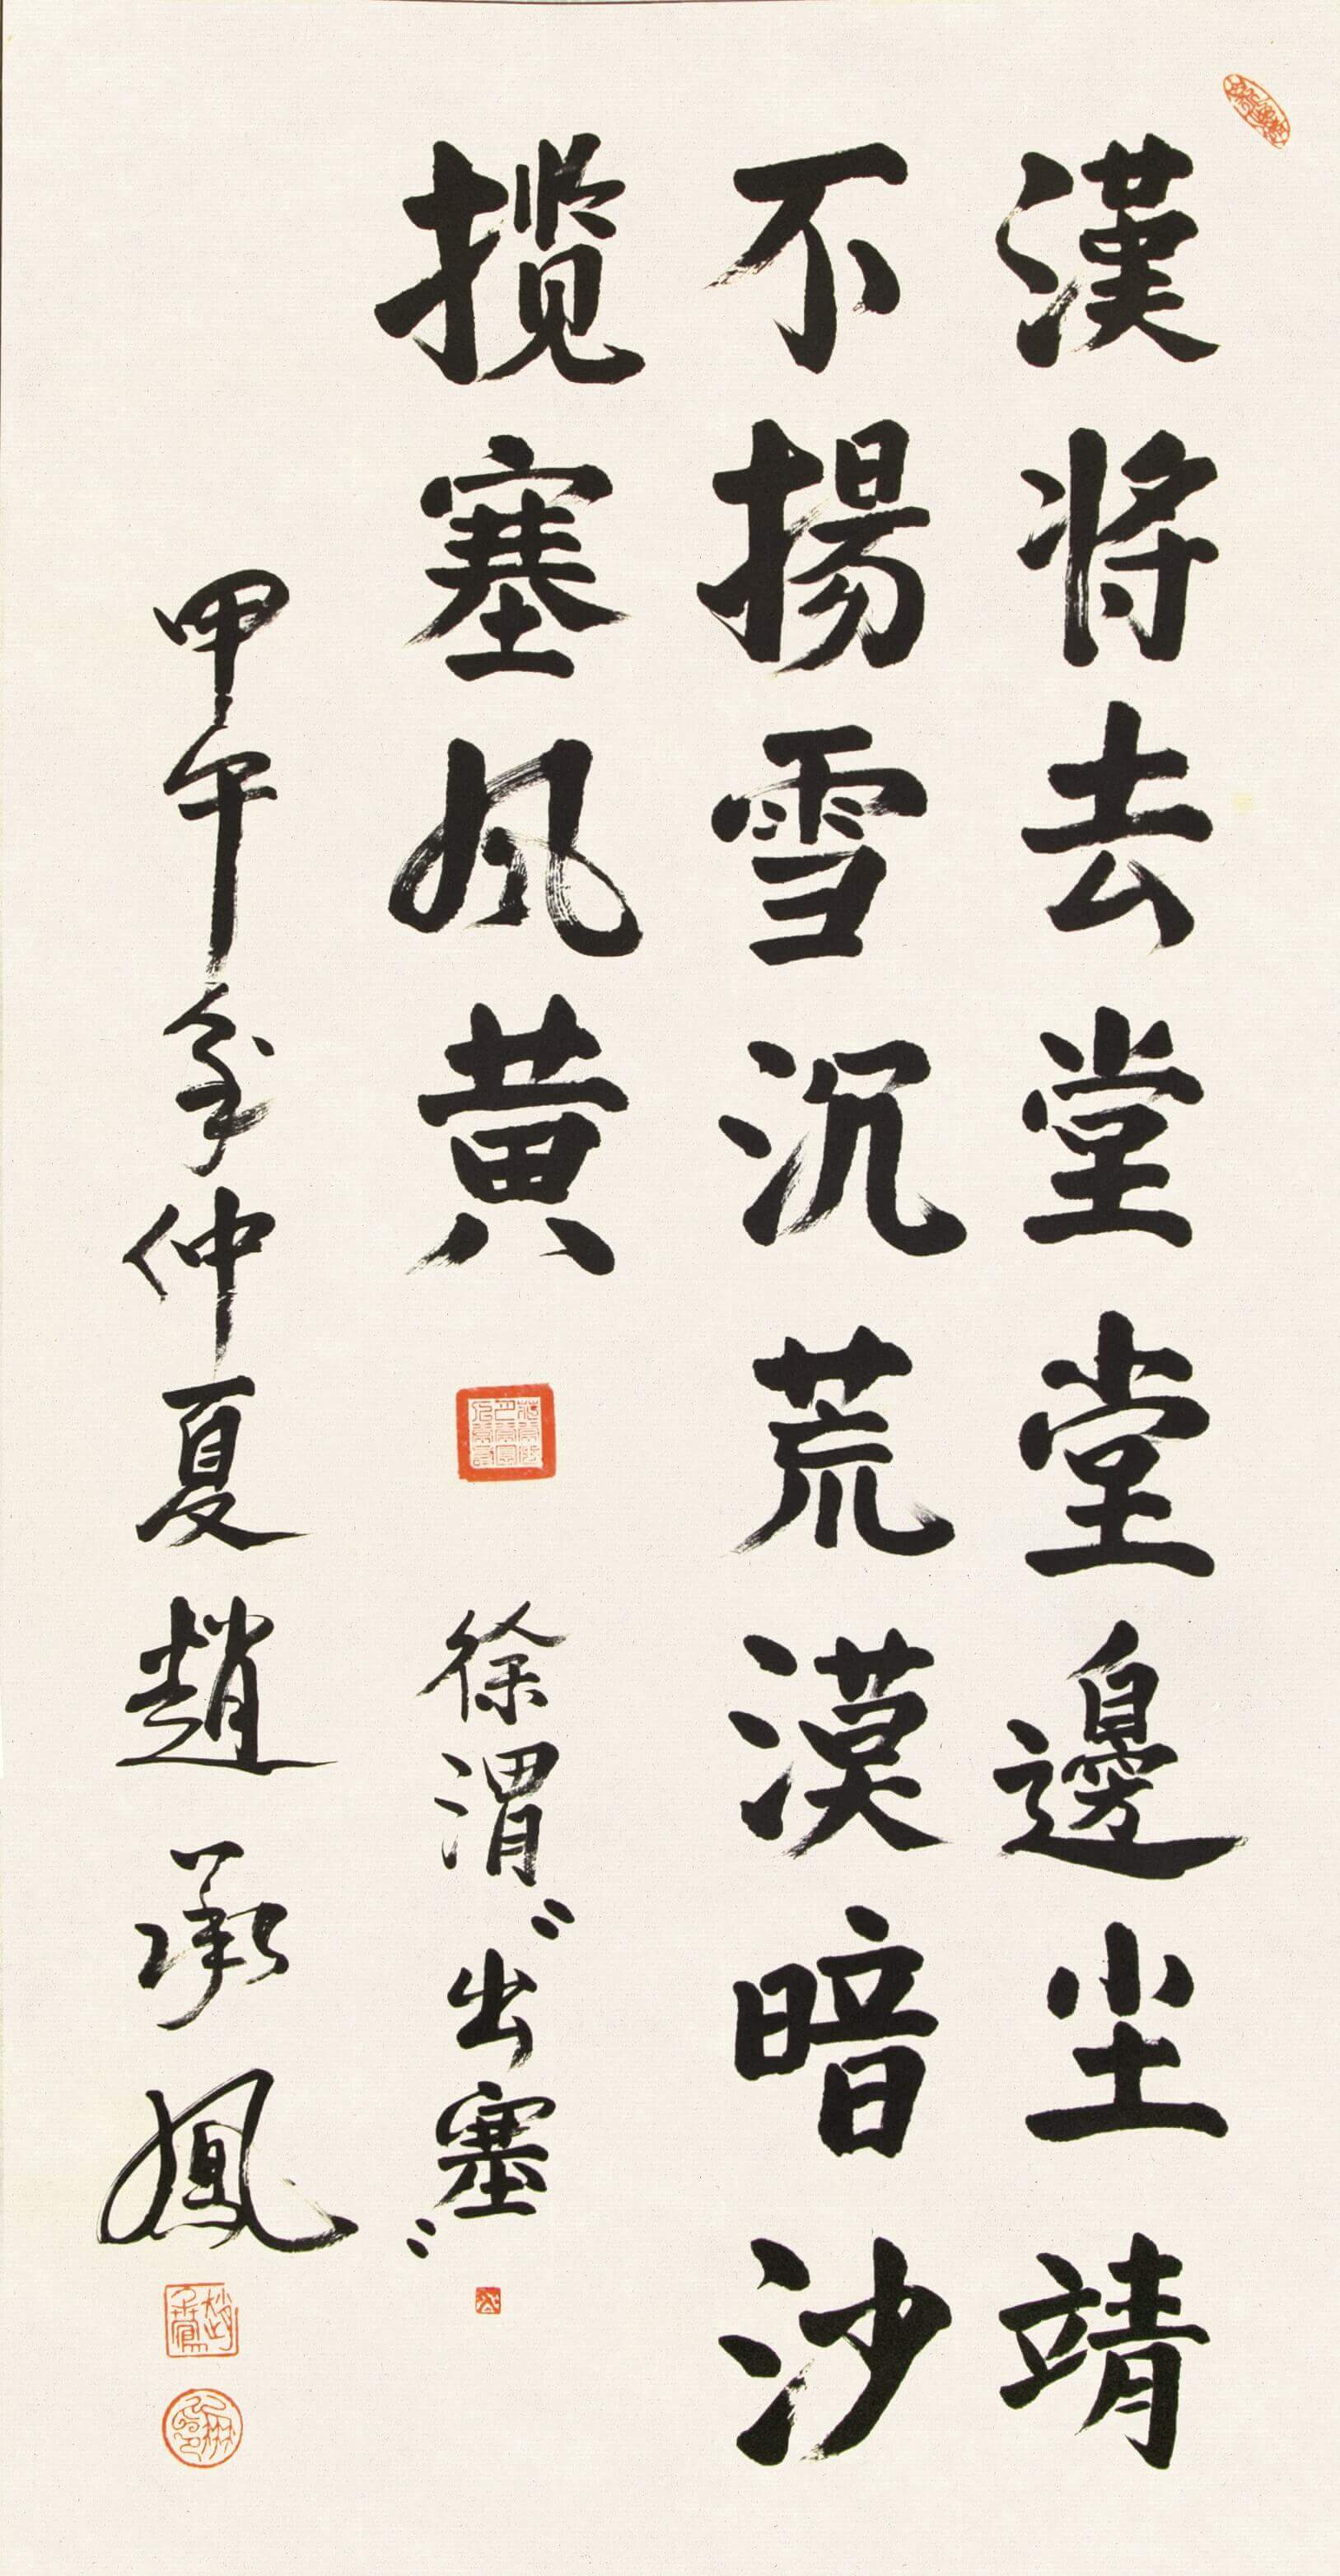 漢将去堂堂邊尘靖
不揚雪沉荒漠暗沙
揽塞风黄
徐渭〝出塞〞
甲午年仲夏趙承鳳